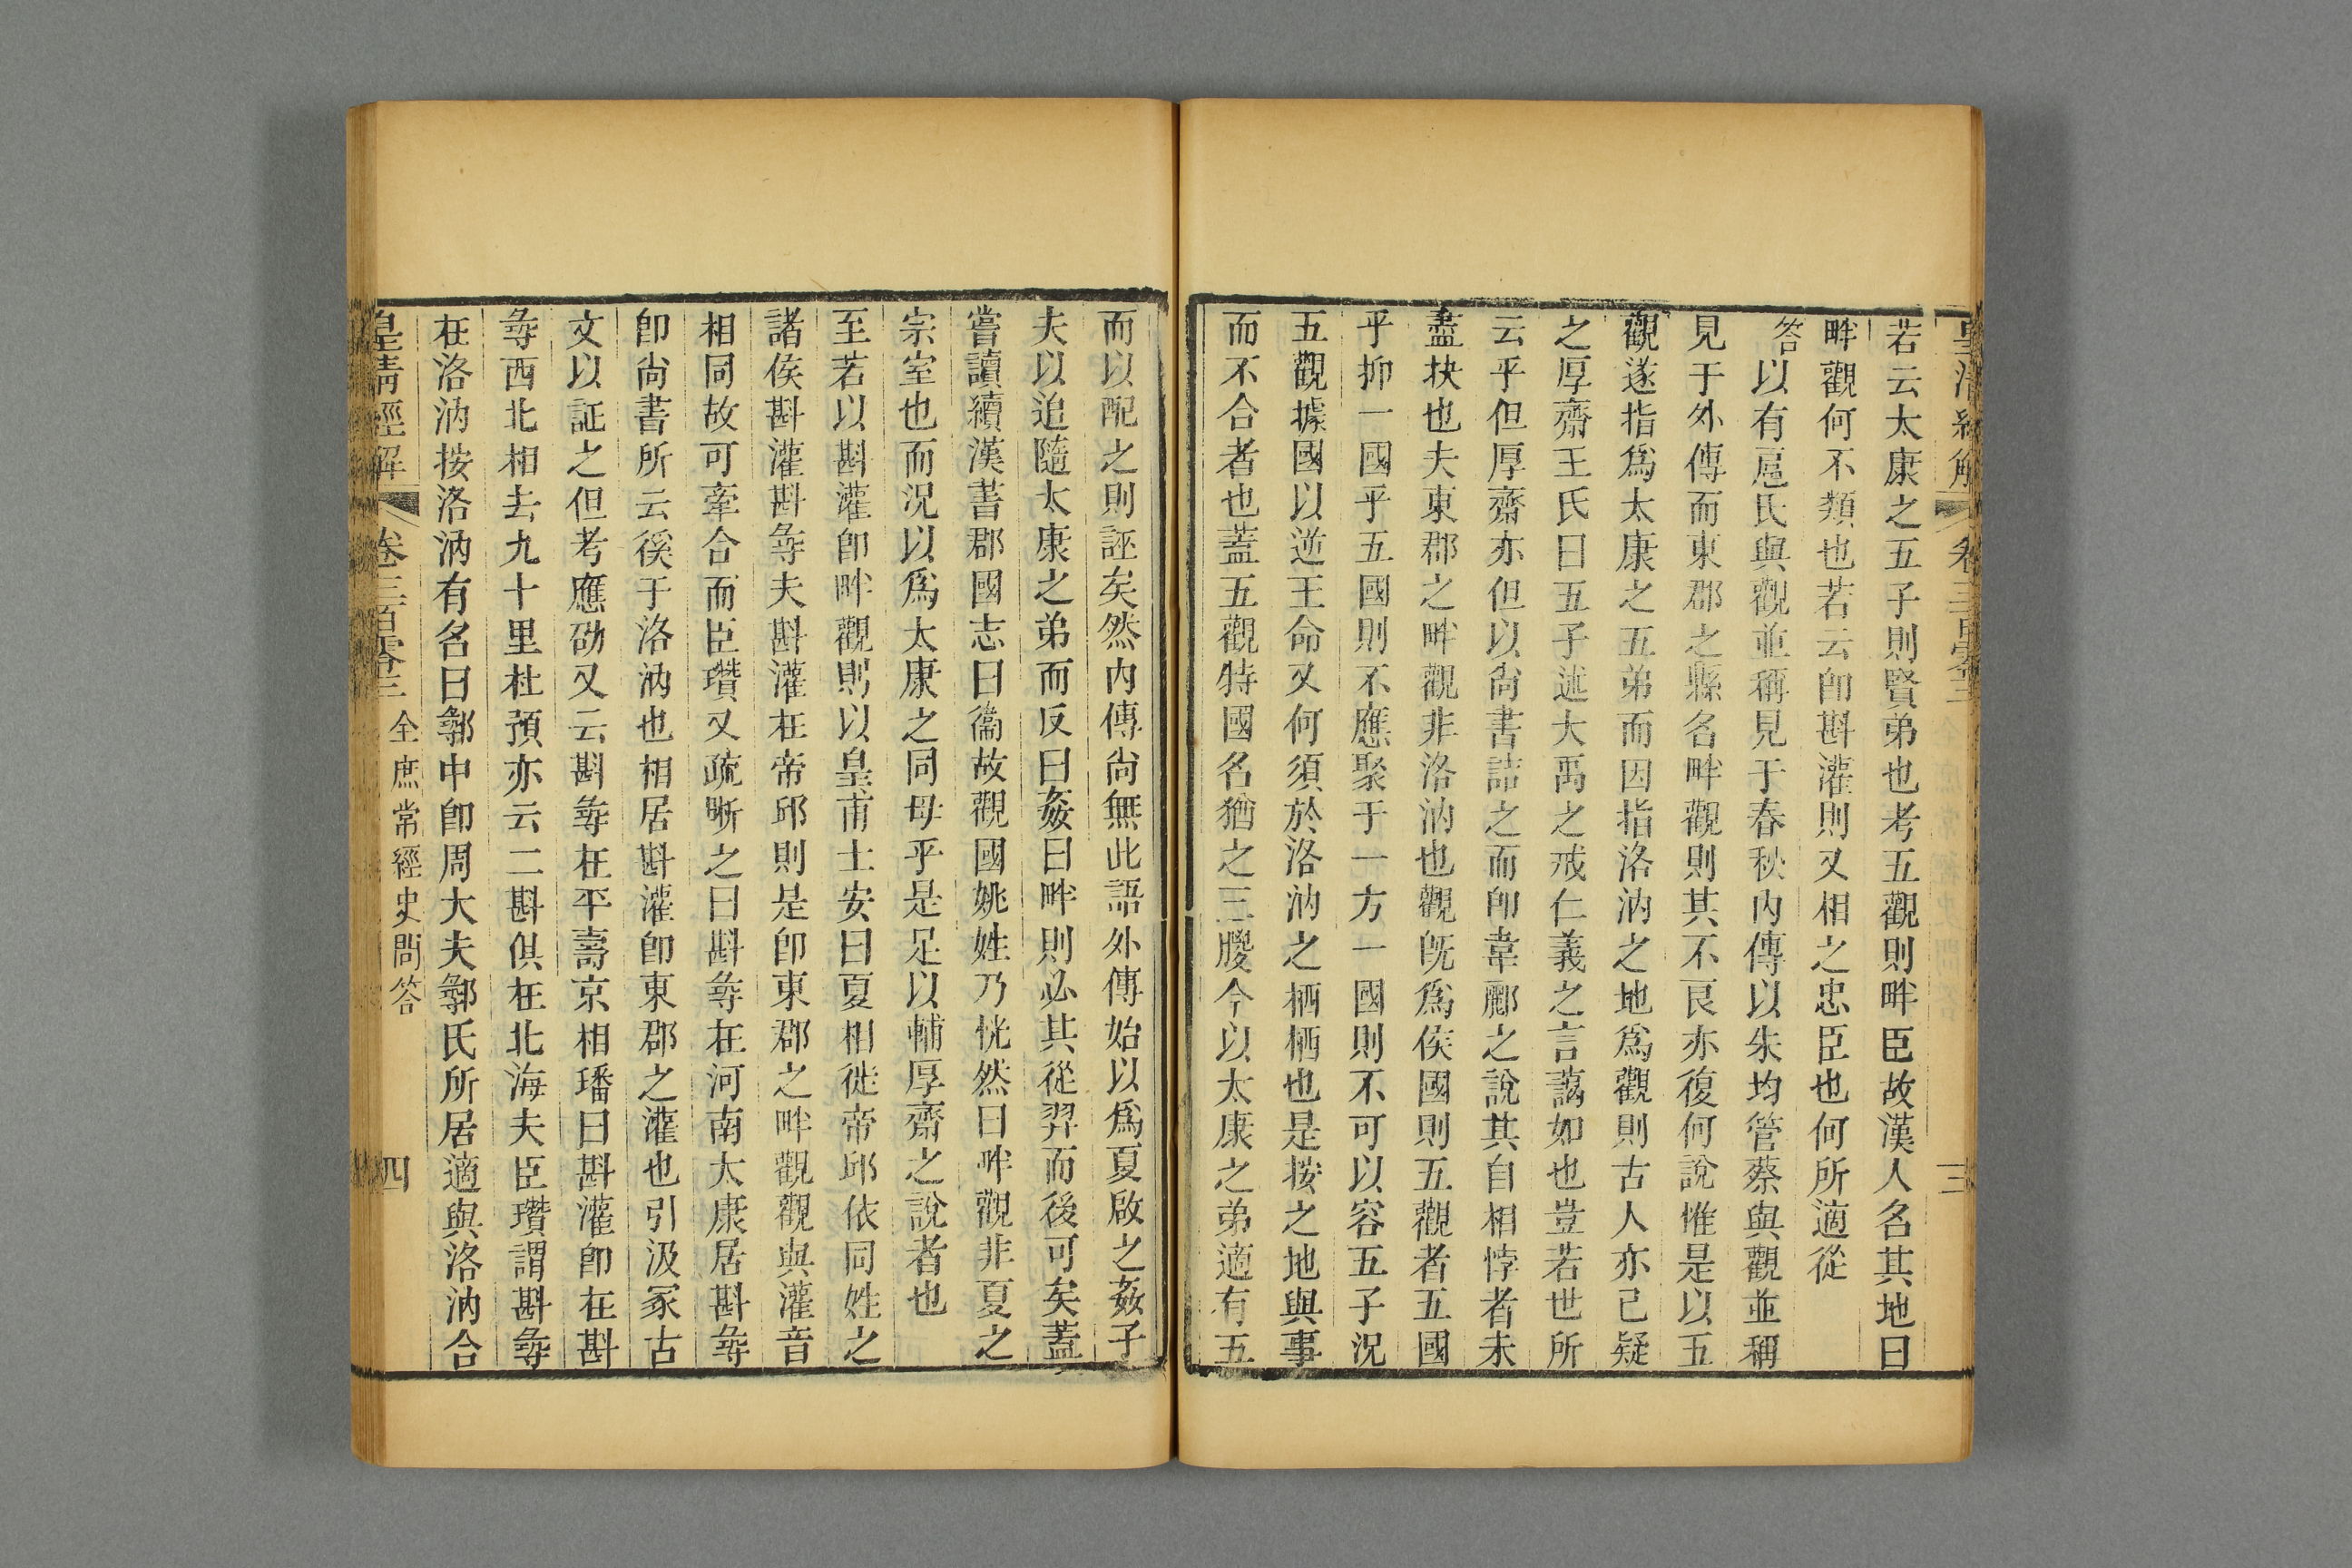 皇清經解 卷三百零三 三
若云太康之五子則賢弟也考五觀則畔臣故漢人名其地曰
畔觀何不類也若云卽斟灌則又相之忠臣也何所適從
答以有扈氏與觀並稱見于春秋内傳以朱均管蔡與觀並稱
見于外傳而東郡之縣名畔觀則其不良亦復何說惟是以五
觀遂指爲太康之五弟而因指洛汭之地爲觀則古人亦已疑
之厚齋王氏曰五子述大禹之戒仁義之言藹如也豈若世所
云乎但厚齋亦但以尙書詰之而卽韋酈之說其自相悖者未
盡抉也夫東郡之畔觀非洛汭也觀旣爲侯國則五觀者五國
乎抑一國乎五國則不應聚于一方一國則不可以容五子況
五觀據國以逆王命又何須於洛汭之栖栖也是按之地與事
而不合者也蓋五觀特國名猶之三朡今以太康之弟適有五
而以配之則誣矣然内傳尙無此語外傳始以爲夏啟之姦子
夫以追隨太康之弟而反曰姦曰畔則必其從羿而後可矣蓋
嘗讀續漢書郡國志曰衞故觀國姚姓乃恍然曰畔觀非夏之
宗室也而況以爲太康之同母乎是足以輔厚齋之說者也
至若以斟灌卽畔觀則以皇甫士安曰夏相徙帝邱依同姓之
諸侯斟灌斟㝷夫斟灌在帝邱則是卽東郡之畔觀觀與灌音
相同故可牽合而臣瓚又疏晰之曰斟㝷在河南太康居斟㝷
卽尙書所云徯于洛汭也相居斟灌卽東郡之灌也引汲冢古
文以証之但考應劭又云斟㝷在平壽京相璠曰斟灌卽在斟
㝷西北相去九十里杜預亦云二斟俱在北海夫臣瓚謂斟㝷
在洛汭按洛汭有名曰鄩中卽周大夫鄩氏所居適與洛汭合
皇清經解 卷三百零三 全庶常經史問答 四